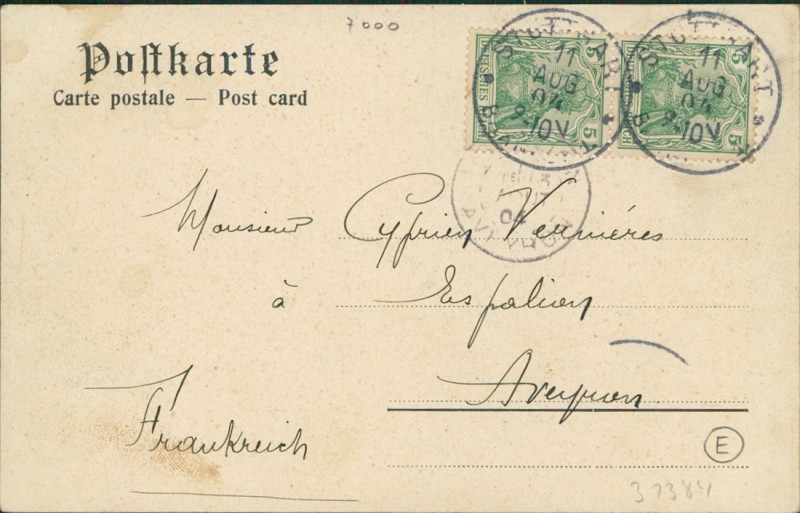 7000
Postkarte
Carte postale — Post card
STUTTGART
11
AUG
04
9-10V
STUTTGART
11
AUG
04
9-10V
5
5
5
5
04
AVEYRON
Monsieur Cyprien Vernières
à Espalion
Aveyron
Frankreich
E
37384